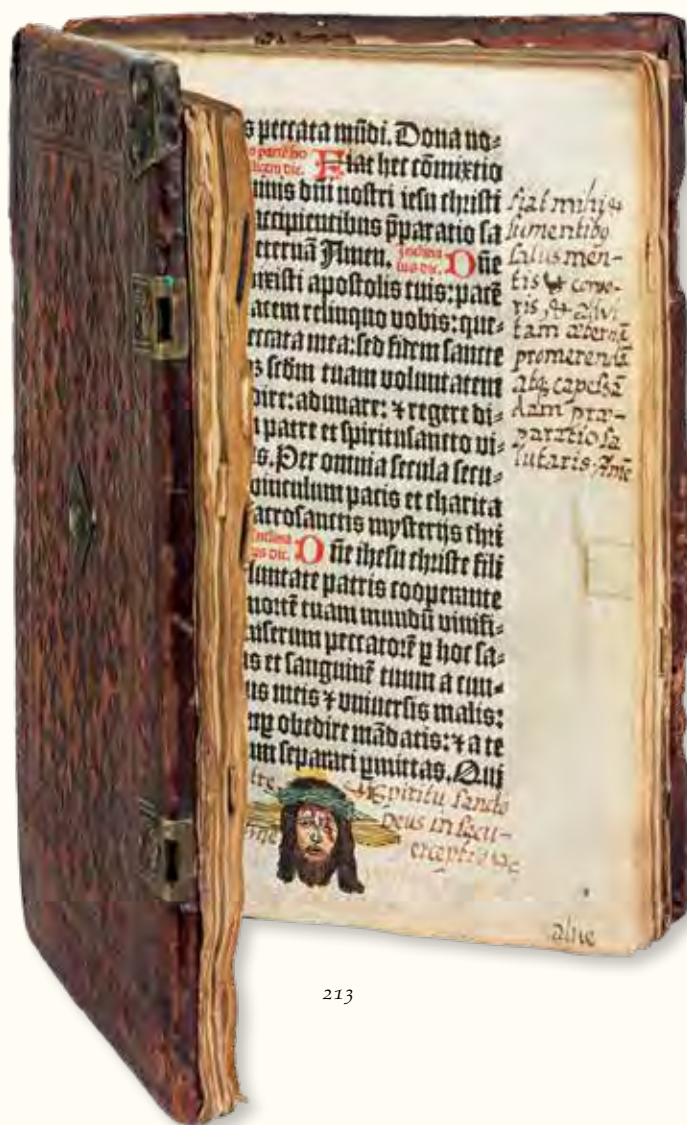 s peccata mūdi. Dona no⸗
Fiat hec cōmixtio
dñi nostri iesu christi
accipientibus p̄paratio sa
eternā Amen. Inclina
tus dic. Dñe
christi apostolis tuis: pacē
acem relinquo vobis: que⸗
eccata mea: sed fidem sancte
scdm tuam voluntatem
dire: adunare: ⁊ regere di⸗
patre et spiritusancto vi⸗
s. Per omnia secula secu⸗
niculum pacis et charita
acrosanctis mysterijs chri
Inclina
tus dic. Dñe ihesu christe fili
luntate patris cooperante
mortē tuam mundū vivifi⸗
iserum peccatorē ꝑ hoc sa⸗
s et sanguinē tuum a cun⸗
is meis ⁊ universis malis:
obedire mādatis: ⁊ a te
um separari ꝑmittas. Qui
fiat mihi &
sumentibꝰ
salus men⸗
tis & corpo⸗
ris, & ad vi
tam æternā
promerendā
atqꝫ capessē
dam præ⸗
paratio sa
lutaris Amē
tre spiritu sancto
Deus in secu⸗
aliie
213